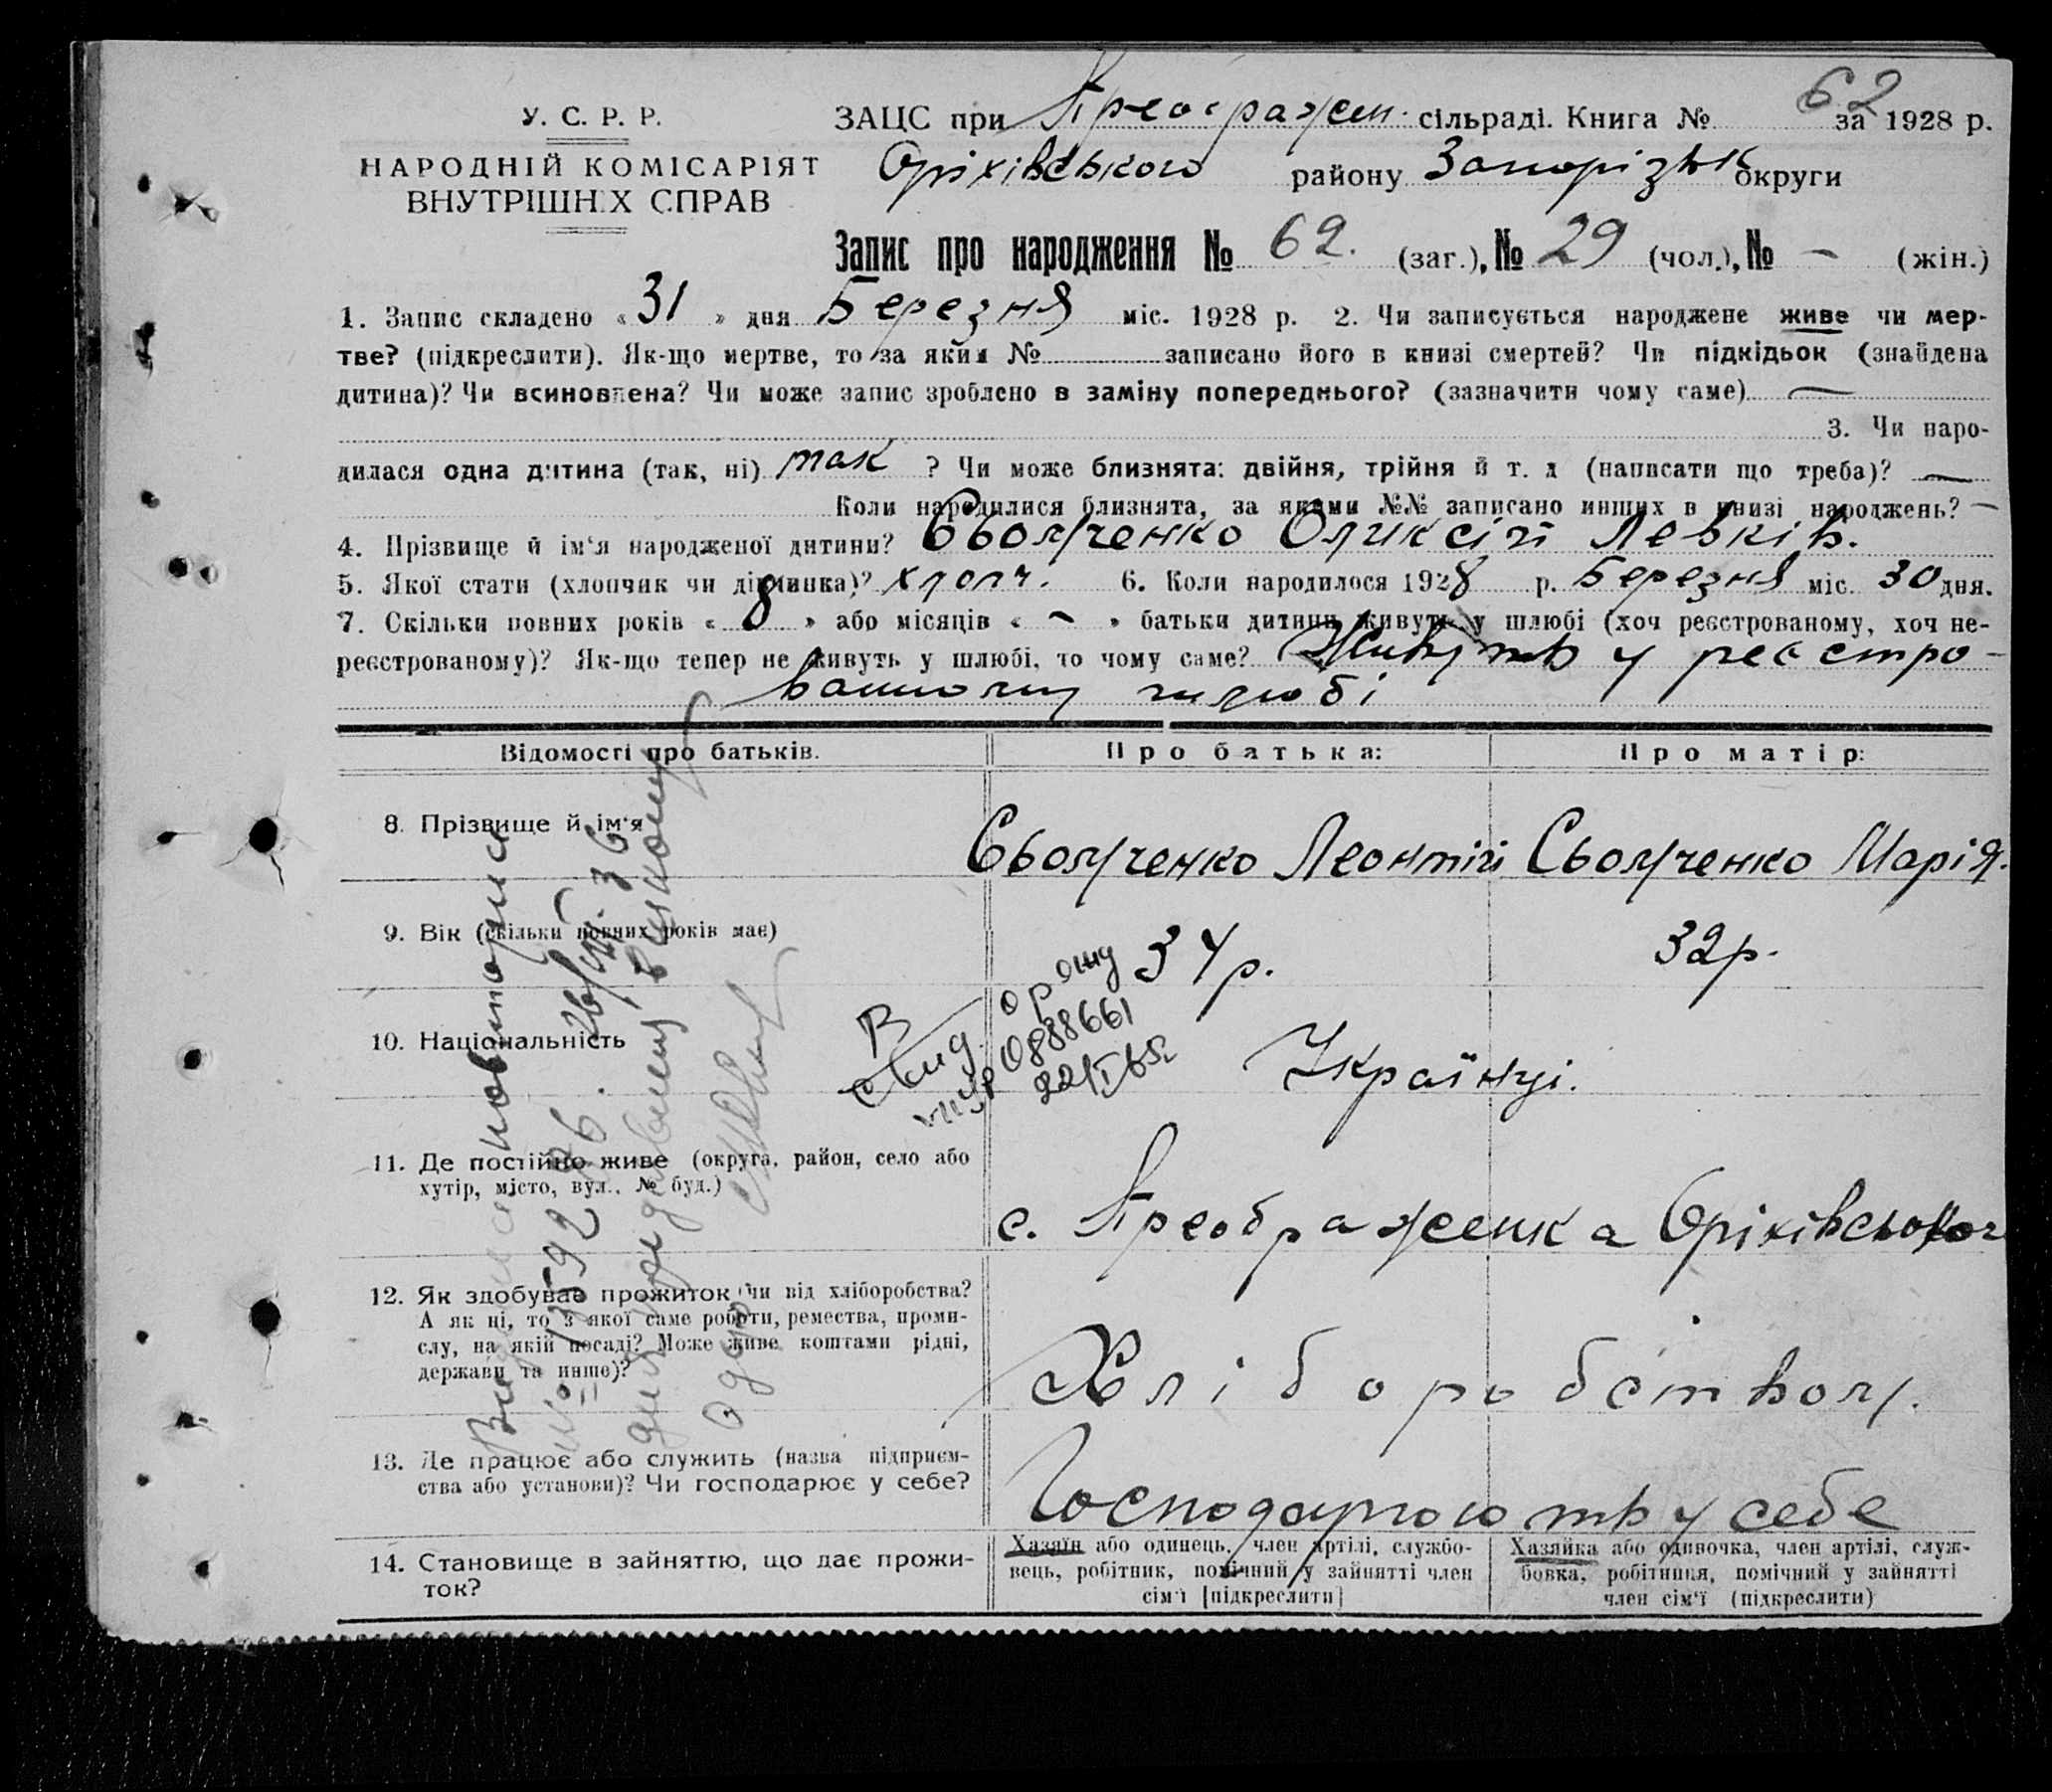 У. С. Р. Р.
НАРОДНІЙ КОМІСАРІЯТ
ВНУТРІШНІХ СПРАВ
ЗАЦС при Преображен. сільраді. Книга № 62 за 1928 р.
Оріхівського району Запорізьк округи
Запис про народження № 62. (заг.), № 29 (чол.), № – (жін.)
1. Запис складено « 31 » дня Березня міс. 1928 р. 2. Чи записується народжене живе чи мер-
тве? (підкреслити). Як-що мертве, то за яким № записано його в книзі смертей? Чи підкідьок (знайдена
дитина)? Чи всиновлена? Чи може запис зроблено в заміну попереднього? (зазначити чому саме) —
3. Чи наро-
дилася одна дитина (так, ні) так ? Чи може близнята: двійня, трійня й т. д (написати що треба)? —
Коли народилися близнята, за якими №№ записано инших в книзі народжень? –
4. Прізвище й ім'я народженої дитини? Сьомченко Оликсій Левків.
5. Якої стати (хлопчик чи дівчинка)? хлопч. 6. Коли народилося 1928 р. Березня міс. 30 дня.
7. Скільки повних років « 8 » або місяців « – » батьки дитини живуть у шлюбі (хоч реєстрованому, хоч не-
реєстрованому)? Як-що тепер не живуть у шлюбі, то чому саме? Живуть у реєстро-
ванному шлюбі
Відомості про батьків.
Про батька:
Про матір:
8. Прізвище й ім'я
Сьомченко Леонтій
Сьомченко Марія.
9. Вік (скільки повних років має)
34р.
32р.
10. Національність
Українці.
11. Де постійно живе (округа, район, село або
хутір, місто, вул., № буд.)
с. Преображенка Оріхівського
12. Як здобуває прожиток чи від хліборобства?
А як ні, то з якої саме роботи, ремества, проми-
слу, на якій посаді? Може живе коштами рідні,
держави та инше)?
Хліборобством.
13. Де працює або служить (назва підприєм-
ства або установи)? Чи господарює у себе?
Господарюють у себе
14. Становище в зайняттю, що дає прожи-
ток?
Хазяїн або одинець, член артілі, службо-
вець, робітник, помічний у зайнятті член
сім'ї [підкреслити]
Хазяйка або одиночка, член артілі, служ-
бовка, робітниця, помічний у зайнятті
член сім'ї (підкреслити)
0888661